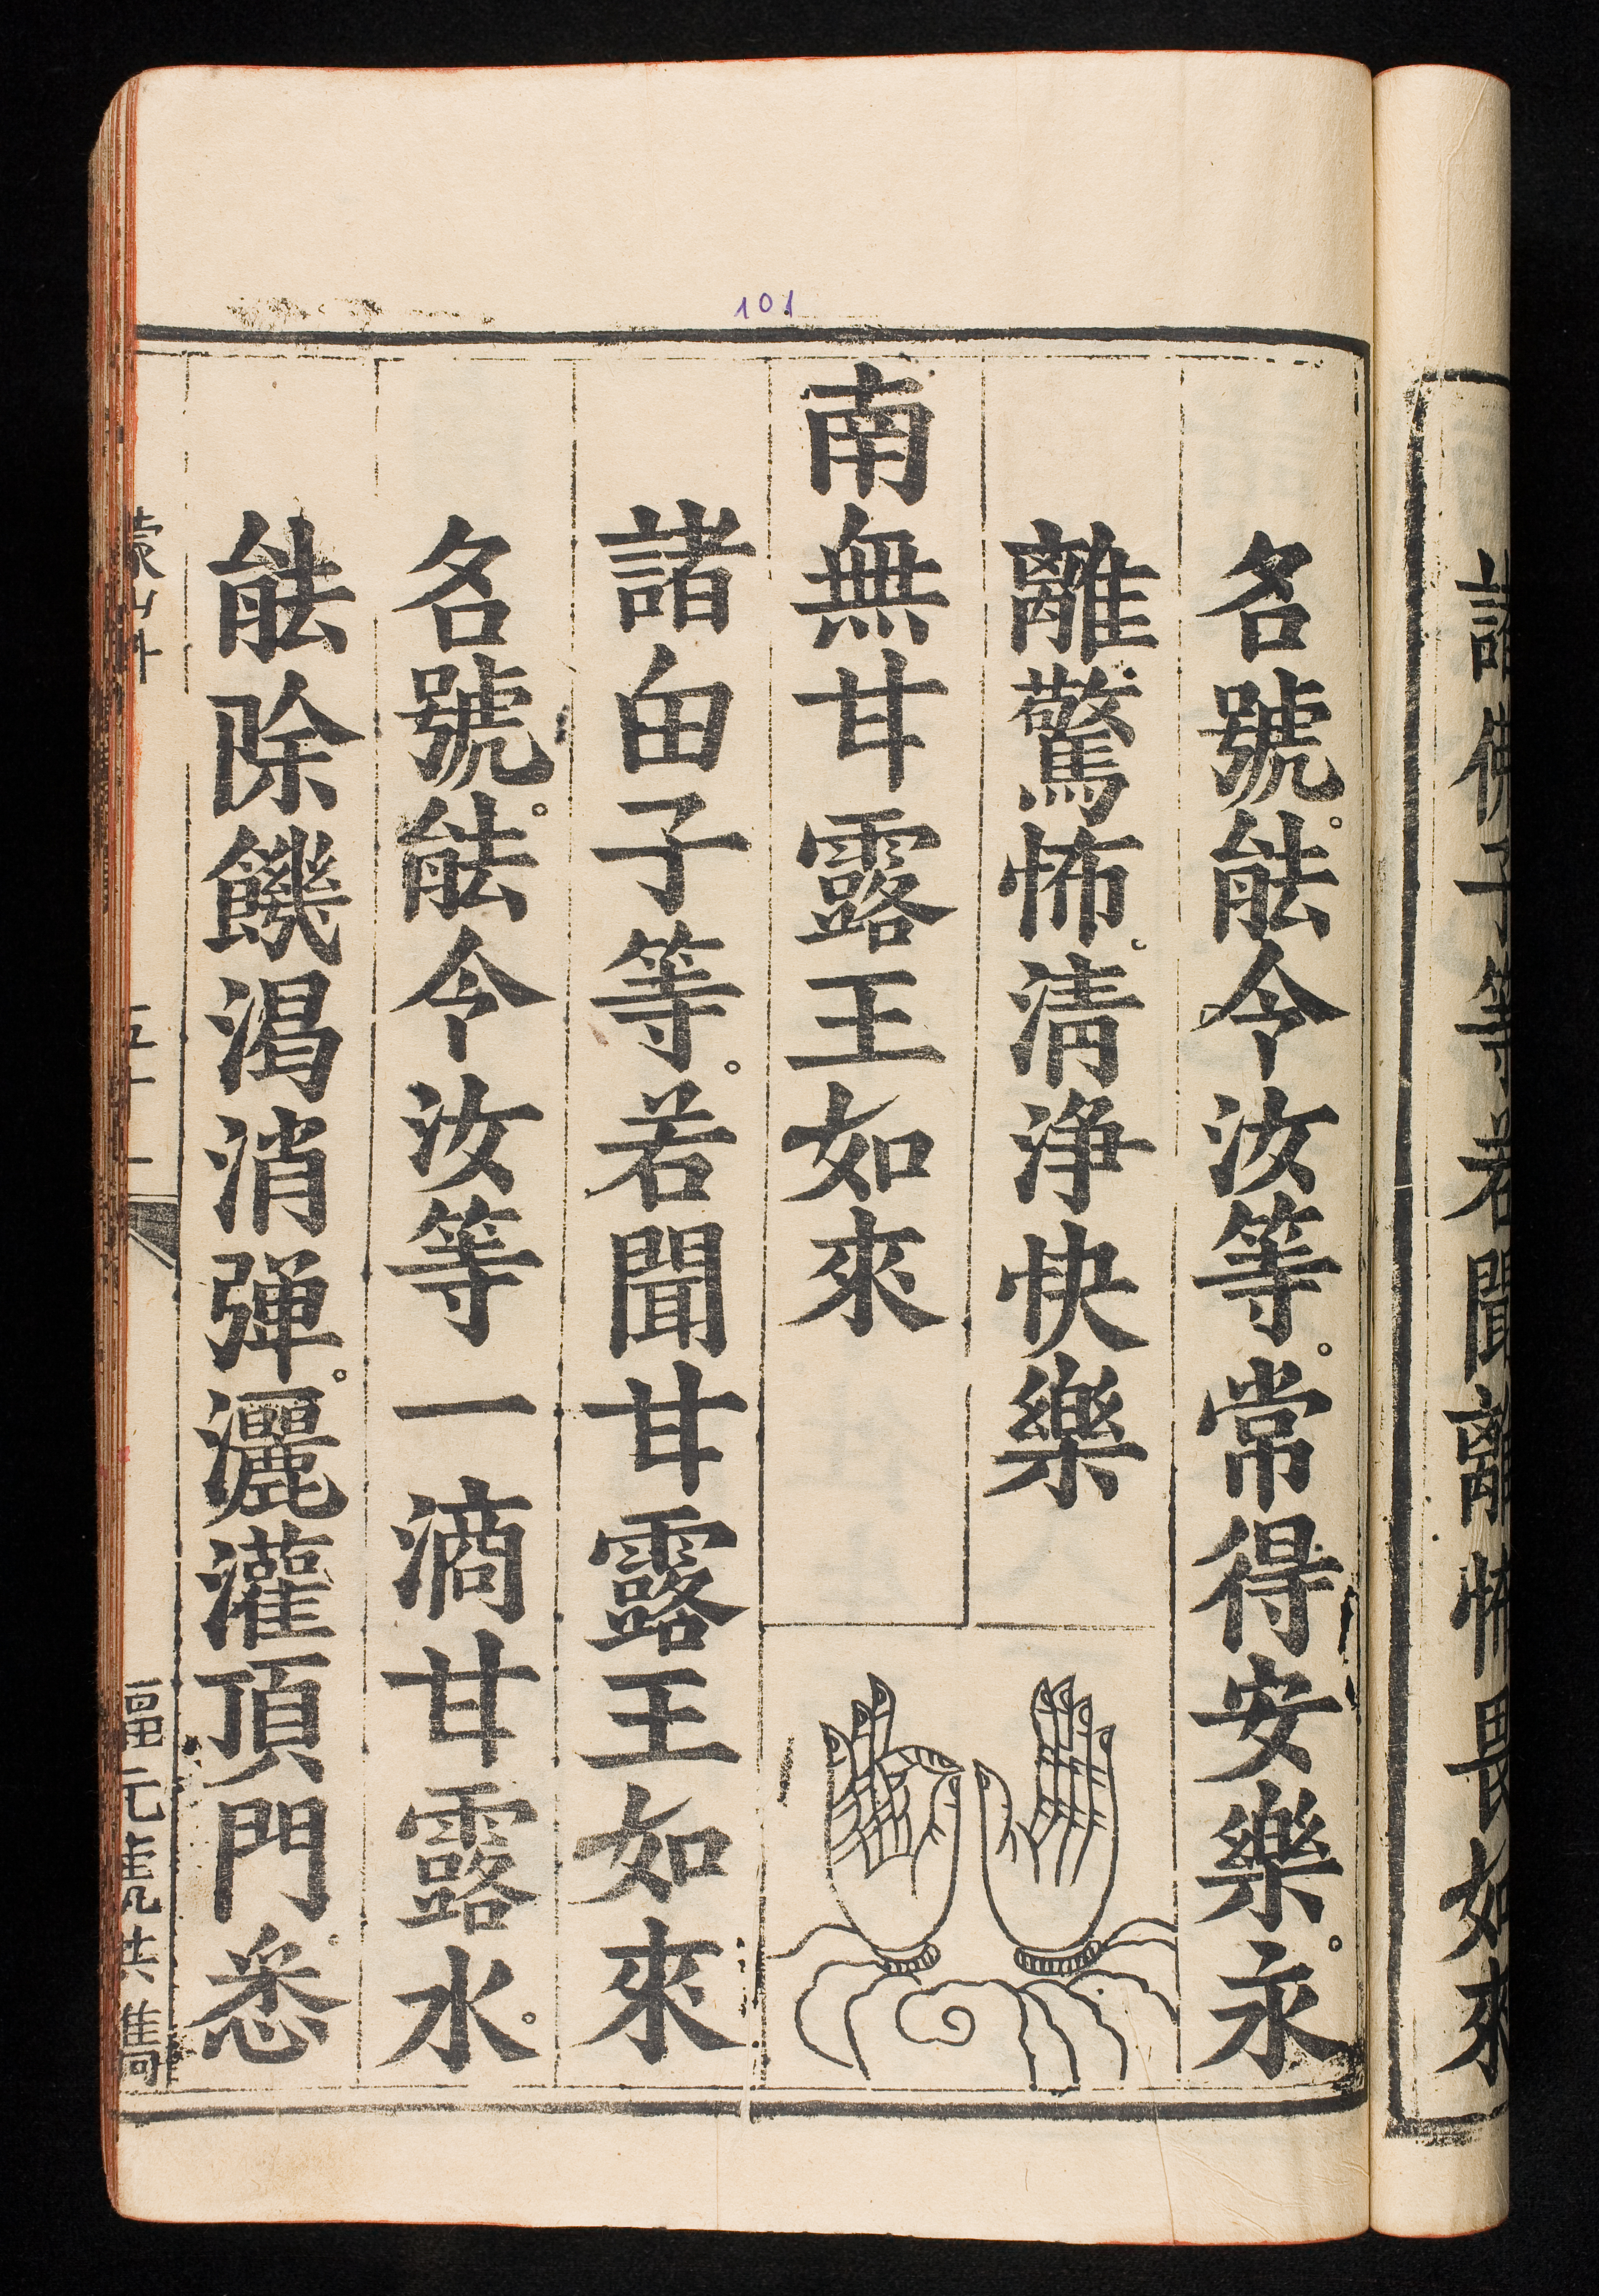 諸佛子等若聞離怖畏如來
名號。䏻令汝等。常得安樂。永
離驚怖。清浄快樂
南無甘露王如來
諸甶子等。若聞甘露王如來
名號。䏻令汝等一滴甘露水。
䏻除饑渴消弾。灑灌頂門。悉
蒙山科
101